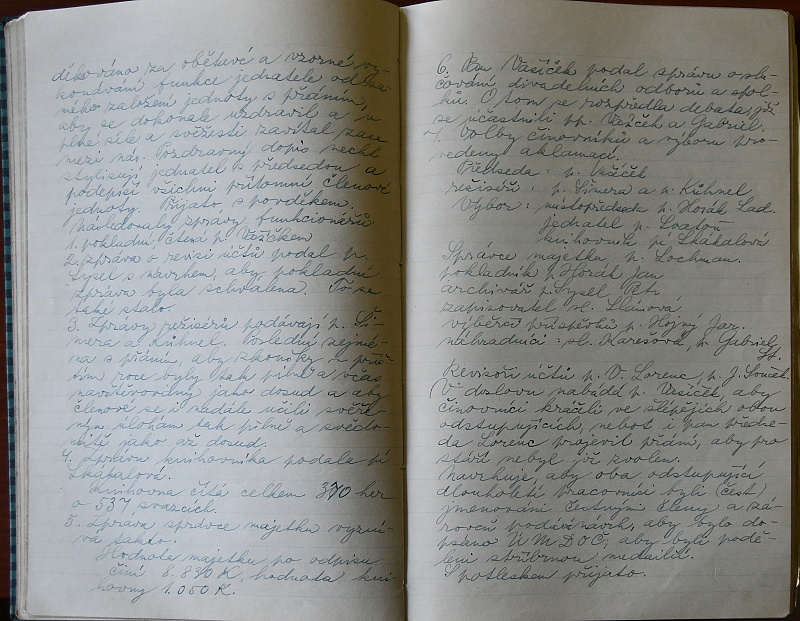 děkováno za obětavé a vzorné vy-
konávání funkce jednatele od sa-
mého založení jednoty s přáním,
aby se dokonale uzdravil a v
plné síle a svěžesti zavítal zase
mezi nás. Pozdravný dopis nechť
stylisují jednatel s předsedou a
podepíší všichni přítomní členové
jednoty. Přijato s povděkem.
Následovaly zprávy funkcionářů
1. pokladní čtená p. Vašíčkem
2. zpráva o revizi účtů podal p.
Sysel s návrhem, aby pokladní
zpráva byla schválena. To se
také stalo.
3. Zprávy režisérů podávají p. Ši-
mera a Kühnel. Poslední zejmé-
na s přáním, aby zkoušky v příš-
tím roce byly tak pilně a včas
navštěvovány jako dosud a aby
členové se i nadále učili svěře-
ným úlohám tak pilně a svědo-
mitě jako až dosud.
4. Zprávu knihovníka podala pí
Skákalová.
Knihovna čítá celkem 370 her
o 537 svazcích.
5. Zpráva správce majetku vyzní-
vá takto.
Hodnota majetku po odpisu
činí 8.830 K, hodnota kni-
hovny 1.060 K.
6. Pan Vašíček podal správu o slu-
čování divadelních odborů a spol-
ků. O tom se rozpředla debata, již
se účastnili pp. Vašíček a Gabriel.
7. Volby činovníků a výboru pro-
vedeny aklamací.
Předseda: p. Vašíček
režiséři: p. Šimera a p. Kühnel
Výbor: místopředseda p. Horák Lad.
jednatel p. Svatoň
knihovník pí Skákalová
Správce majetku p. Lochman.
pokladník p. Horák Jan
archivář p. Sysel Petr
zapisovatel sl. Slámová
výběrčí příspěvků p. Hojný Jar.
náhradníci: sl. Karešová, p. Gabriel
St.
Revisoři účtů p. V. Lorenc, p. J. Souček.
V doslovu nabádá p. Vašíček, aby
činovníci kráčeli ve šlépějích obou
odstupujících, neboť i pan předse-
da Lorenc projevil přání, aby pro
stáří nebyl již zvolen.
Navrhuje, aby oba odstupující
dlouholetí pracovníci byli (čest)
jmenováni čestnými členy a zá-
roveň podává návrh, aby bylo do-
psáno ÚMDOČ, aby byli podě-
leni stříbrnou medailií.
S potleskem přijato.